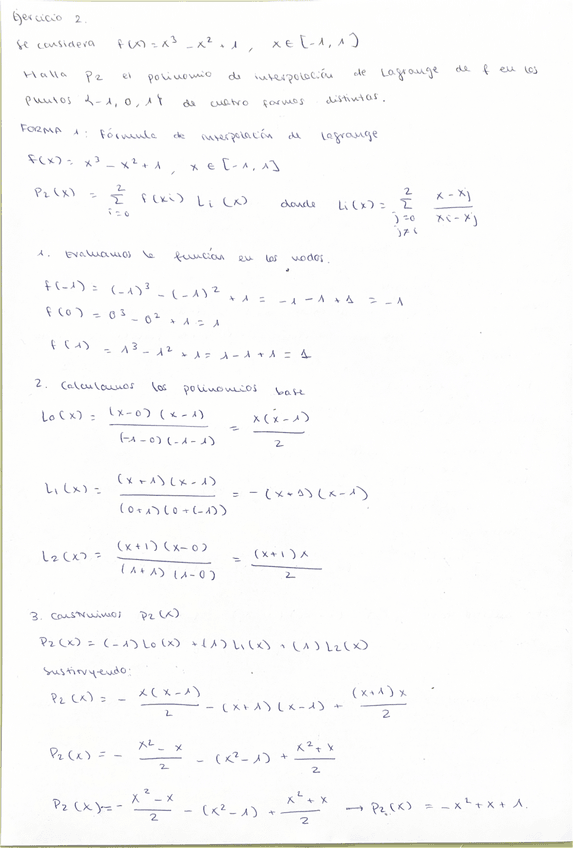 Ejercicio 2.
Se considera f(x) = x³ - x² + 1 , x ∈ [-1, 1]
Halla P2 el polinomio de interpolación de Lagrange de f en los
puntos {-1, 0, 1} de cuatro formas distintas.
FORMA 1: Fórmula de interpolación de lagrange
f(x) = x³ - x² + 1 , x ∈ [-1, 1]
P2(x) = ∑_{i=0}^{2} f(xi) Li(x) donde Li(x) = ∑_{j=0, j≠i}^{2} (x - xj)/(xi - xj)
1. Evaluamos la función en los nodos.
f(-1) = (-1)³ - (-1)² + 1 = -1 - 1 + 1 = -1
f(0) = 0³ - 0² + 1 = 1
f(1) = 1³ - 1² + 1 = 1 - 1 + 1 = 1
2. Calculamos los polinomios base
L0(x) = (x-0)(x-1)/((-1-0)(-1-1)) = x(x-1)/2
L1(x) = (x+1)(x-1)/((0+1)(0+(-1))) = -(x+1)(x-1)
L2(x) = (x+1)(x-0)/((1+1)(1-0)) = (x+1)x/2
3. Construimos P2(x)
P2(x) = (-1)L0(x) + (1)L1(x) + (1)L2(x)
Sustituyendo:
P2(x) = - x(x-1)/2 - (x+1)(x-1) + (x+1)x/2
P2(x) = - (x²-x)/2 - (x²-1) + (x²+x)/2
P2(x) = - (x²-x)/2 - (x²-1) + (x²+x)/2 → P2(x) = -x²+x+1.